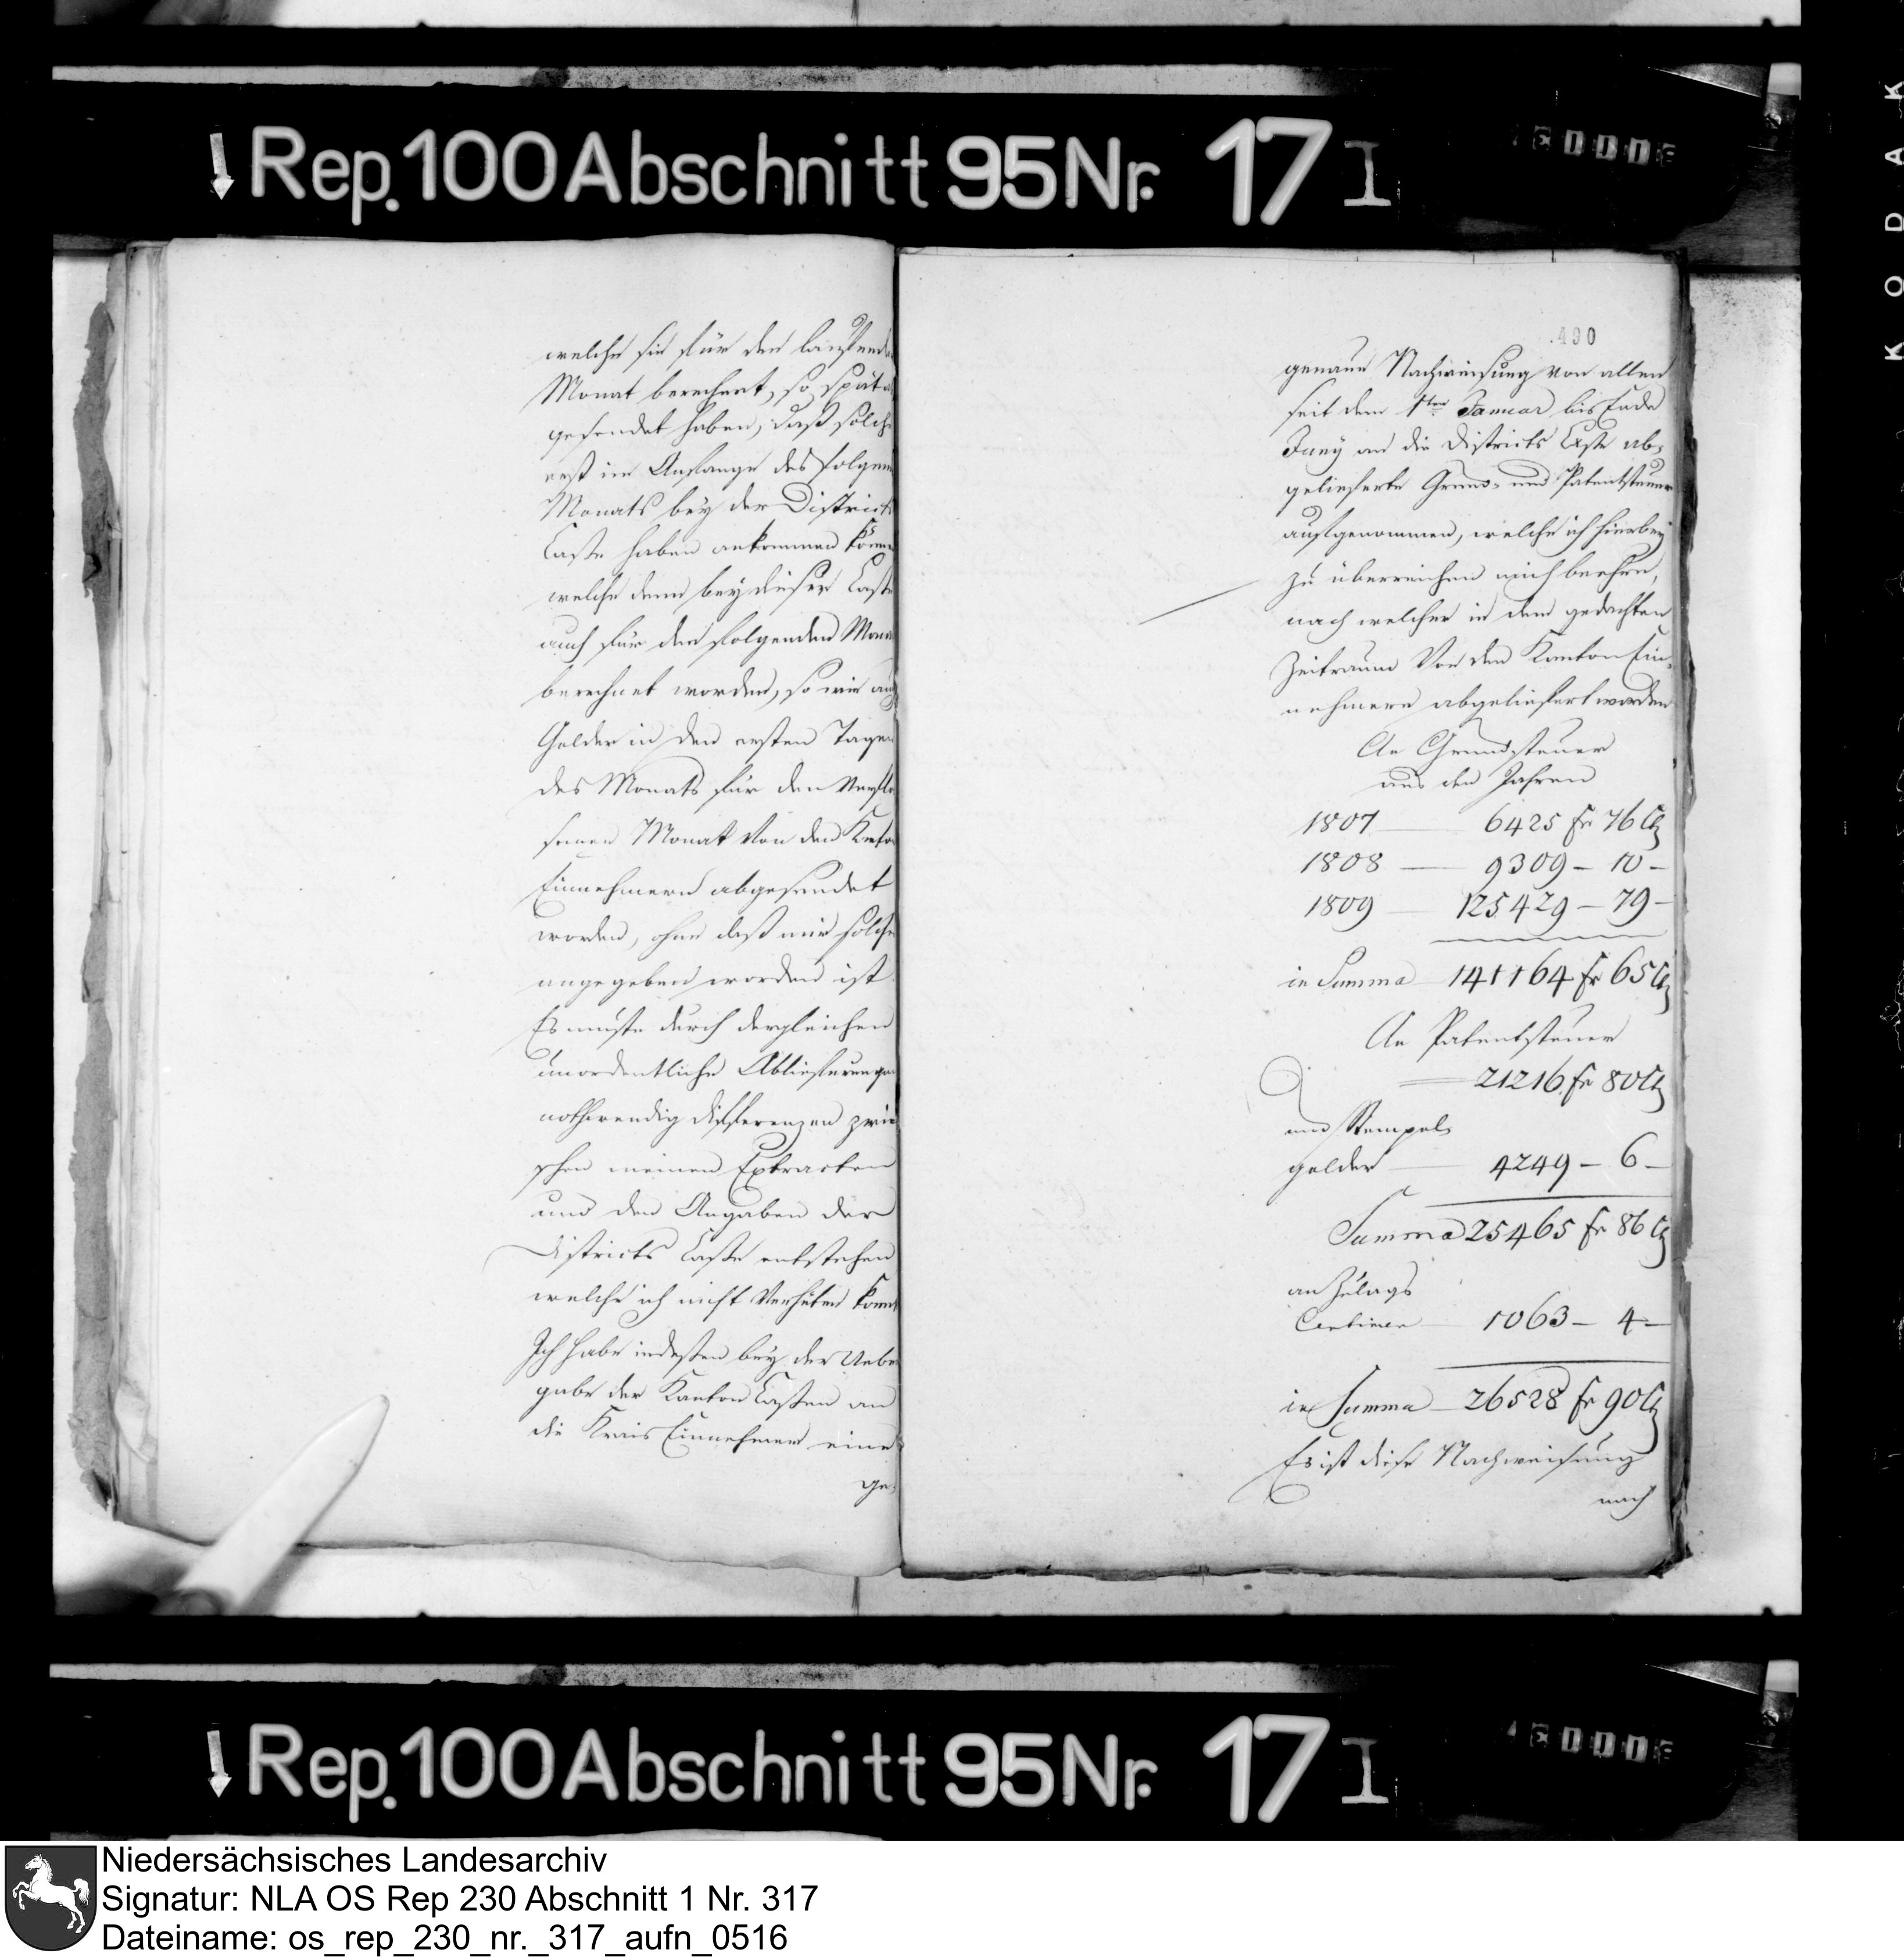 Rep. 100 Abschnitt 95 Nr. 17 I
welche sie für den laufende
Monat berechnet, so spät a
gesendet haben, daß solch
erst im Anfange des folgen
Monats bey der District
Casse haben ankommen könn
welche denn bey dieser Casse
auch für den folgenden Mon
berechnet worden, so wie auch
Gelder in den ersten Tagen
des Monats für den verflo
senen Monat von den Kanto
Einnehmern abgesendet
worden, ohne daß mir solche
angegeben worden ist.
Es mußte durch dergleichen
unordentliche Ablieferungen
nothwendig differenzen zwi
schen meinen Extracten
und den Angaben der
Districts Casse entstehen
welche ich nicht verhüten konnt
Ich habe indessen bey der Ueber
gabe der Kanton Cassen an
die Kreis Einnehmer eine
ge:
490
genaue Nachweisung von allen
seit dem 1ten Januar bis Ende
Juny an die Districts Casse ab-
gelieferte Grund- und Patentsteuer
aufgenommen, welche ich hierbey
zu überreichen mich beehre,
nach welcher in dem gedachten
Zeitraum von den Kanton Ein-
nehmern abgeliefert worden
An Grundsteuer
aus den Jahren
1807 — 6425 fr 76 Ct
1808 — 9309 — 10 —
1809 — 125429 — 79 —
in Summa 141164 fr 65 Ct
An Patentsteuer
21216 fr 80 Ct
und Stempel
gelder — 4249 — 6 —
Summa 25465 fr 86 Ct
an Zulags
Centimen — 1063 — 4 —
in Summa — 26528 fr 90 Ct
Es ist diese Nachweisung
nach
KODAK
Rep. 100 Abschnitt 95 Nr. 17 I
Niedersächsisches Landesarchiv
Signatur: NLA OS Rep 230 Abschnitt 1 Nr. 317
Dateiname: os_rep_230_nr._317_aufn_0516